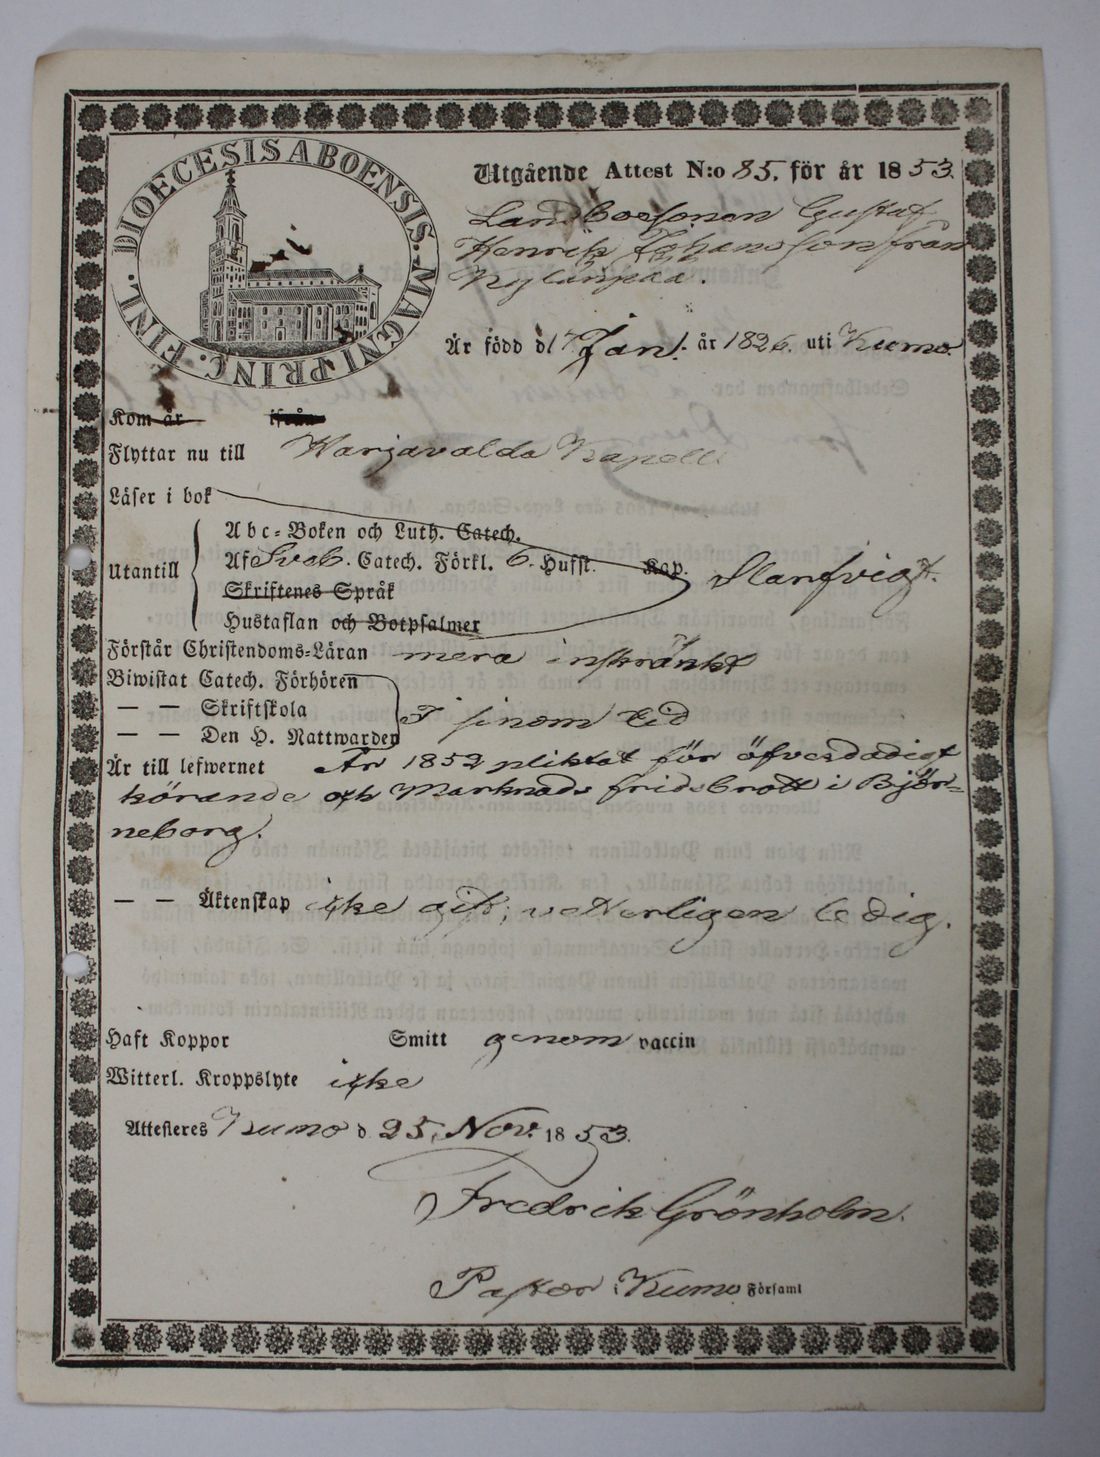 DIOECESIS ABOENSIS. MAGNI PRINC. FINL.
Utgående Attest N:o 85. för år 1853.
Landbosonen Gustaf
Henrik Johansson från
Är född d 17 Jan. år 1826. uti Kumo.
Kom år ifrån
Flyttar nu till Harjavalda Kapell
Läser i bok
Abc-Boken och Luth. Catech.
Utantill Af Sveb. Catech. Förkl. 6. Hufst. Kap.
Skriftenes Språk
Hustaflan och Botpsalmer
Förstår Christendoms-Läran mera inskränkt
Biwistat Catech. Förhören
— — Skriftskola I sinom tid
— — Den H. Nattwarden
Är till lefwernet År 1852 pliktat för öfverdådigt
körande och Marknads fridsbrott i Björ-
neborg.
— — Äktenskap icke gift; vetterligen ledig.
Haft Koppor Smitt genom vaccin
Witterl. Kroppslyte icke
Attesteres Kumo d 25. Nov. 1853.
Fredrik Grönholm.
Pastor i Kumo Församl